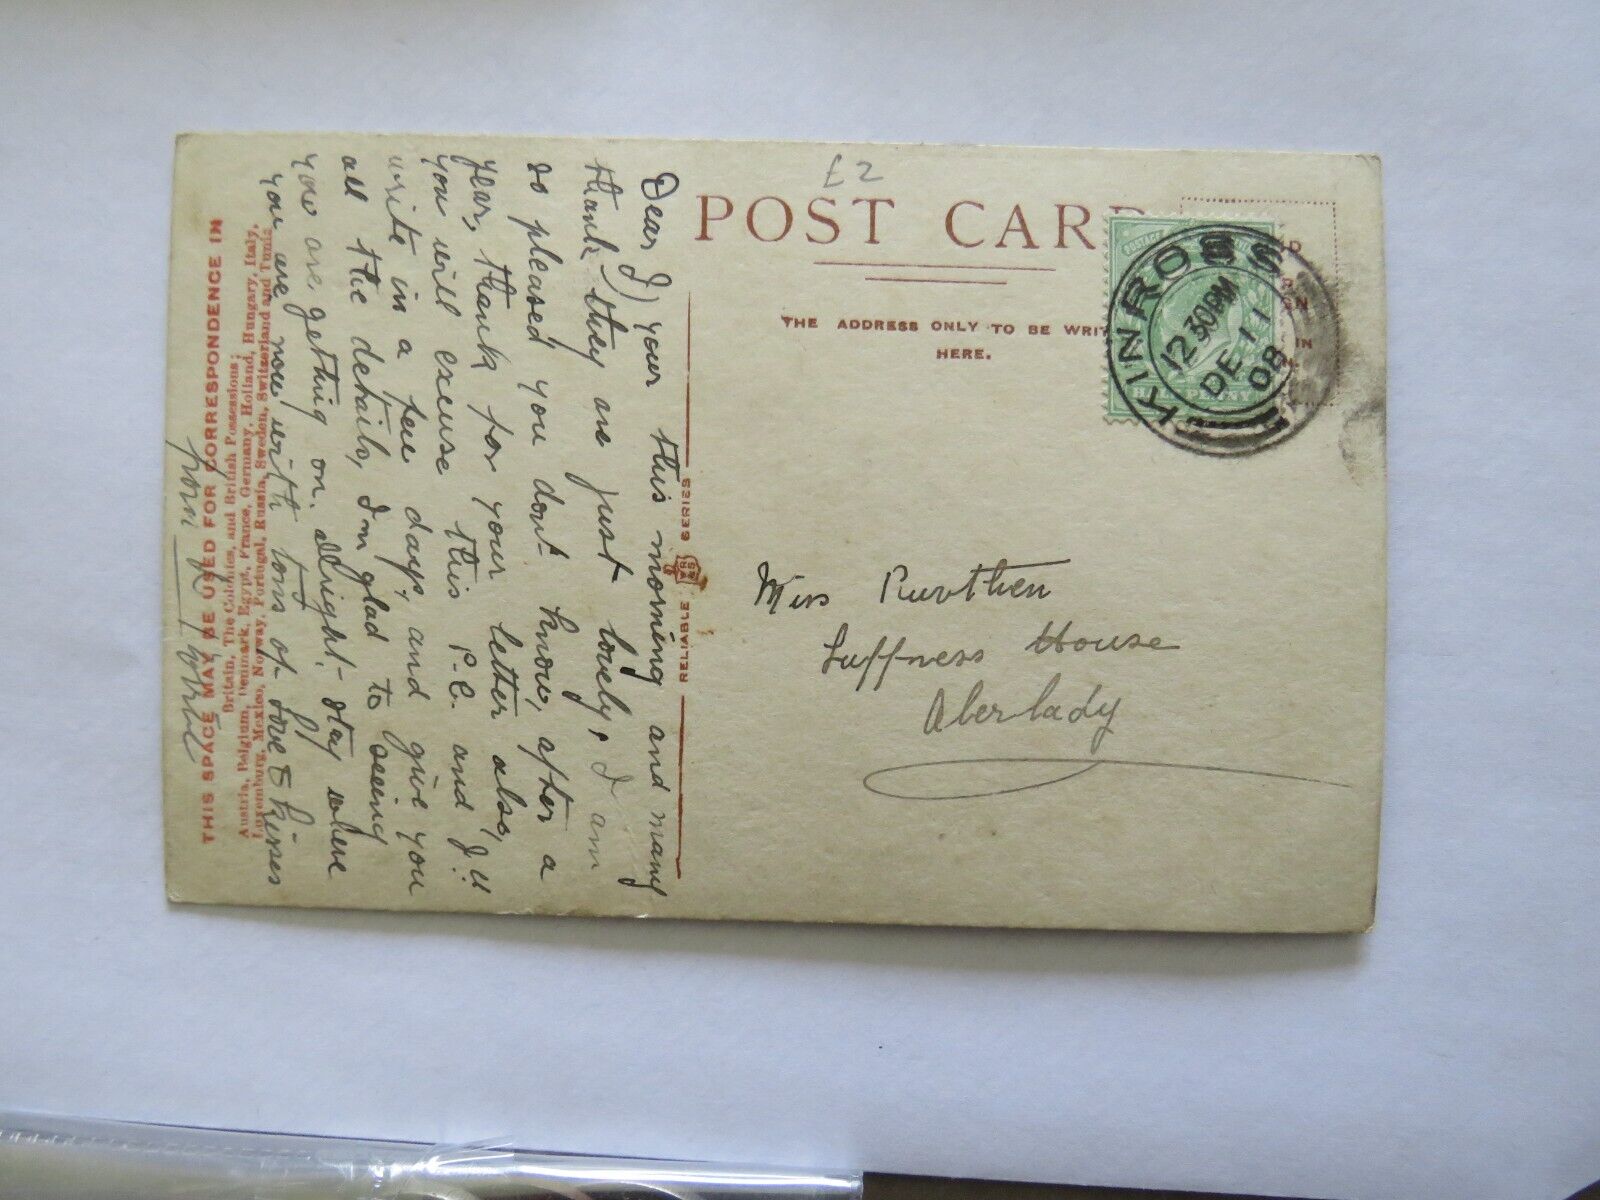 £2
POST CARD
THE ADDRESS ONLY TO BE WRIT
HERE.
KINROSS
12 30PM
DE 11
08
HALFPENNY
Miss Ruvthen
Luffness House
Aberlady
RELIABLE SERIES
THIS SPACE MAY BE USED FOR CORRESPONDENCE IN
Britain, The Colonies, and British Possessions;
Austria, Belgium, Denmark, Egypt, France, Germany, Holland, Hungary, Italy,
Luxemburg, Mexico, Norway, Portugal, Russia, Sweden, Switzerland and Tunis
Dear J) your this morning and many
thanks they are just lovely, I am
so pleased you dont know, after a
year, thank for your letter also,
you will excuse this P.C. and I'll
write in a few days, and give you
all the details, I'm glad to seeing
you are getting on allright stay where
you are now with tons of love & kisses
from